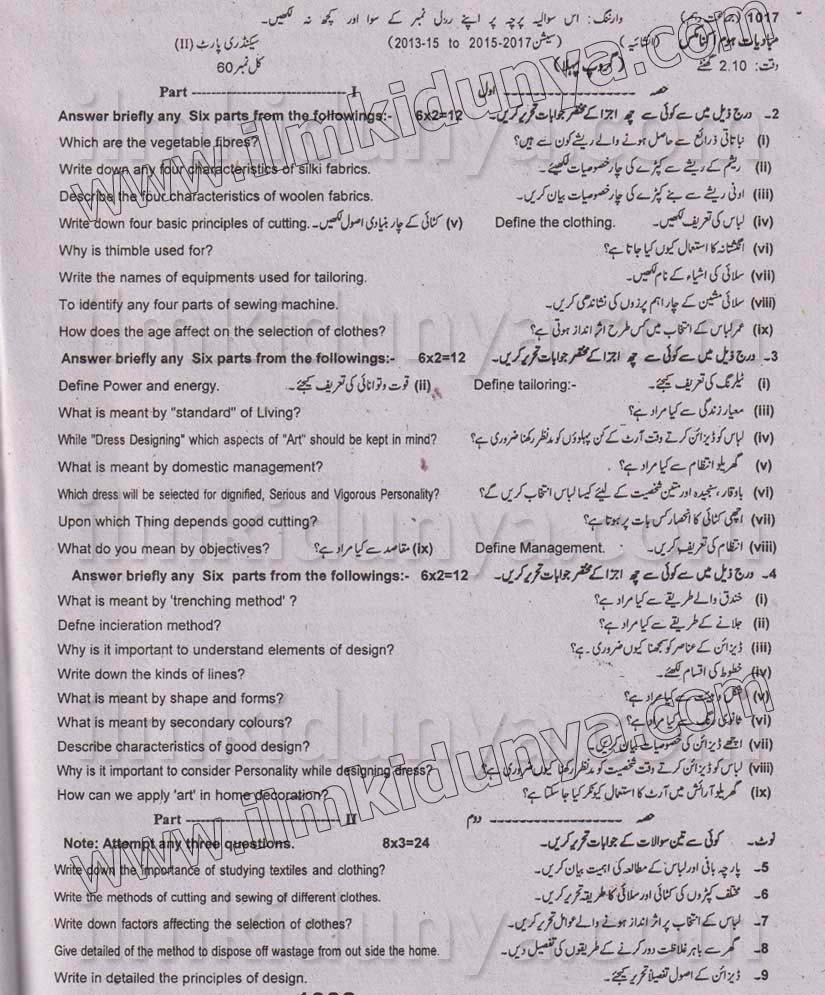 1017 (جماعت دہم) وارننگ: اس سوالیہ پرچہ پر اپنے رول نمبر کے سوا اور کچھ نہ لکھیں۔
مبادیات ہوم اکنامکس (انشائیہ) (سیشن 2015-2017 to 2013-15) سیکنڈری پارٹ (II)
وقت: 2.10 گھنٹے (گروپ پہلا) کل نمبر 60
Part ---------------------- I حصہ ---------------------- اول
Answer briefly any Six parts from the followings:- 6x2=12 2۔ درج ذیل میں سے کوئی سے چھ اجزا کے مختصر جوابات تحریر کریں۔
Which are the vegetable fibres? (i) نباتاتی ذرائع سے حاصل ہونے والے ریشے کون سے ہیں؟
Write down any four characteristics of silki fabrics. (ii) ریشم کے ریشے سے کپڑے کی چار خصوصیات لکھیئے۔
Describe the four characteristics of woolen fabrics. (iii) اونی ریشے سے بنے کپڑے کی چار خصوصیات بیان کریں۔
Write down four basic principles of cutting. (v) کٹائی کے چار بنیادی اصول لکھیں۔ Define the clothing. (iv) لباس کی تعریف لکھیں۔
Why is thimble used for? (vi) انگشتانہ کا استعمال کیوں کیا جاتا ہے؟
Write the names of equipments used for tailoring. (vii) سلائی کی اشیاء کے نام لکھیں۔
To identify any four parts of sewing machine. (viii) سلائی مشین کے چار اہم پرزوں کی نشاندھی کریں۔
How does the age affect on the selection of clothes? (ix) عمر لباس کے انتخاب میں کس طرح اثر انداز ہوتی ہے؟
Answer briefly any Six parts from the followings:- 6x2=12 3۔ درج ذیل میں سے کوئی سے چھ اجزا کے مختصر جوابات تحریر کریں۔
Define Power and energy. (ii) قوت و توانائی کی تعریف کیجئے۔ Define tailoring:- (i) ٹیلرنگ کی تعریف کیجئے۔
What is meant by "standard" of Living? (iii) معیار زندگی سے کیا مراد ہے؟
While "Dress Designing" which aspects of "Art" should be kept in mind? (iv) لباس کو ڈیزائن کرتے وقت آرٹ کے کن پہلوؤں کو مدنظر رکھنا ضروری ہے؟
What is meant by domestic management? (v) گھریلو انتظام سے کیا مراد ہے؟
Which dress will be selected for dignified, Serious and Vigorous Personality? (vi) باوقار، سنجیدہ اور متین شخصیت کے لیئے کیسا لباس انتخاب کریں گے؟
Upon which Thing depends good cutting? (vii) اچھی کٹائی کا انحصار کس بات پر ہوتا ہے؟
What do you mean by objectives? (ix) مقاصد سے کیا مراد ہے؟ Define Management. (viii) انتظام کی تعریف کریں۔
Answer briefly any Six parts from the followings:- 6x2=12 4۔ درج ذیل میں سے کوئی سے چھ اجزا کے مختصر جوابات تحریر کریں۔
What is meant by 'trenching method' ? (i) خندق والے طریقے سے کیا مراد ہے؟
Defne incieration method? (ii) جلانے کے طریقے سے کیا مراد ہے؟
Why is it important to understand elements of design? (iii) ڈیزائن کے عناصر کو سمجھنا کیوں ضروری ہے؟
Write down the kinds of lines? (iv) خطوط کی اقسام لکھئے۔
What is meant by shape and forms? (v) شکل و ہیئت سے کیا مراد ہے؟
What is meant by secondary colours? (vi) ثانوی رنگ سے کیا مراد ہے؟
Describe characteristics of good design? (vii) اچھے ڈیزائن کی خصوصیات بیان کریں۔
Why is it important to consider Personality while designing dress? (viii) لباس کو ڈیزائن کرتے وقت شخصیت کو مدنظر رکھنا کیوں ضروری ہے؟
How can we apply 'art' in home decoration? (ix) گھریلو آرائش میں آرٹ کا استعمال کیونکر کیا جا سکتا ہے؟
Part ---------------------- II حصہ ---------------------- دوم
Note: Attempt any three questions. 8x3=24 نوٹ۔ کوئی سے تین سوالات کے جوابات تحریر کریں۔
Write down the importance of studying textiles and clothing? 5۔ پارچہ بانی اور لباس کے مطالعہ کی اہمیت بیان کریں۔
Write the methods of cutting and sewing of different clothes. 6۔ مختلف کپڑوں کی کٹائی اور سلائی کا طریقہ تحریر کریں۔
Write down factors affecting the selection of clothes? 7۔ لباس کے انتخاب پر اثر انداز ہونے والے عوامل تحریر کریں۔
Give detailed of the method to dispose off wastage from out side the home. 8۔ گھر سے باہر غلاظت دور کرنے کے طریقوں کی تفصیل دیں۔
Write in detailed the principles of design. 9۔ ڈیزائن کے اصول تفصیلاً تحریر کیجئے۔
www.ilmkidunya.com
www.ilmkidunya.com
ilmkidunya.com
ilmkidunya.com
ilmkidunya.com
ilmkidunya.com